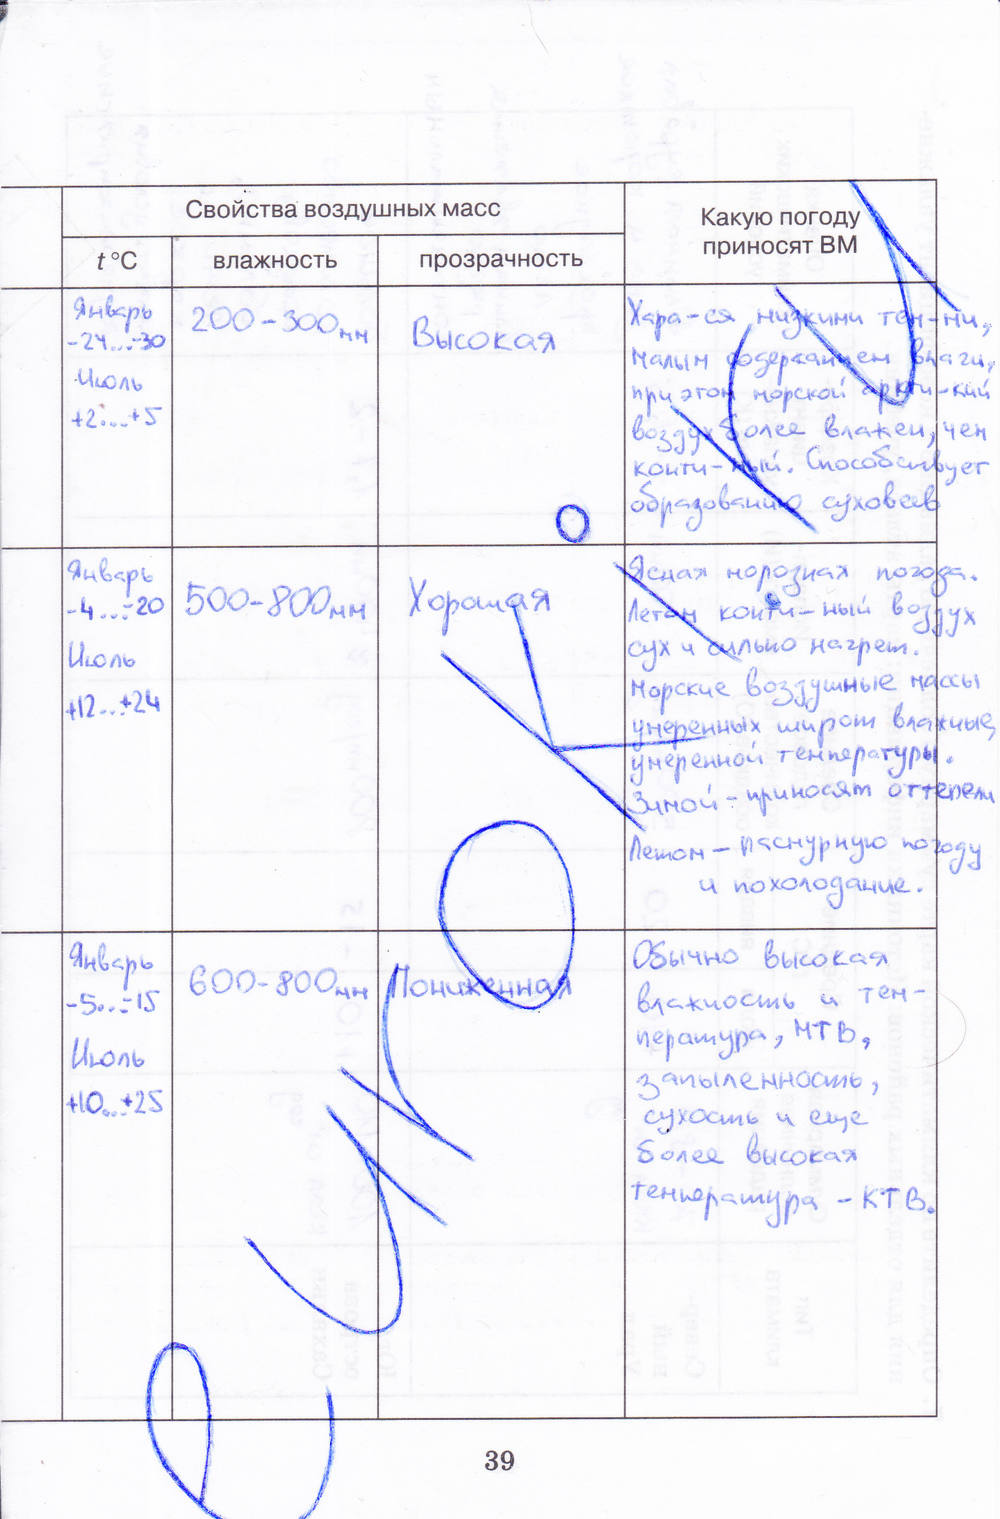 Свойства воздушных масс
Какую погоду
приносят ВМ
t °C
влажность
прозрачность
Январь
-24...-30
Июль
+2...+5
200-300мм
Высокая
Хара-ся низкими тем-ми,
малым содержанием влаги,
при этом морской аркти-кий
воздух более влажен, чем
конти-ный. Способствует
образованию суховеев
Январь
-4...-20
Июль
+12...+24
500-800мм
Хорошая
Ясная морозная погода.
Летом конти-ный воздух
сух и сильно нагрет.
Морские воздушные массы
умеренных широт влажные,
умеренной температуры.
Зимой - приносят оттепели
Летом - пасмурную погоду
и похолодание.
Январь
-5...-15
Июль
+10...+25
600-800мм
Пониженная
Обычно высокая
влажность и тем-
пература, МТВ,
запыленность,
сухость и еще
более высокая
температура - КТВ.
еуроки.ру
39